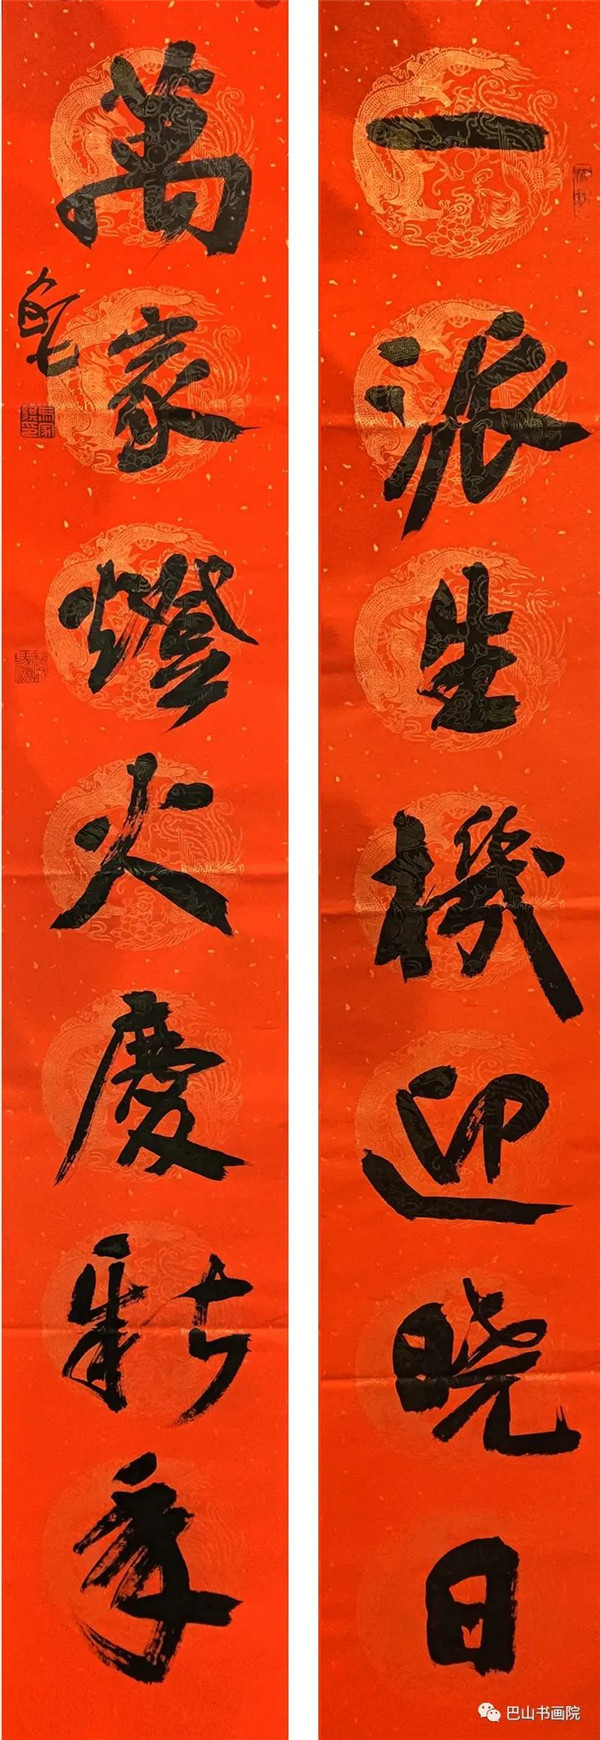 一派生機迎晓日
萬家燈火慶新年
巴山书画院